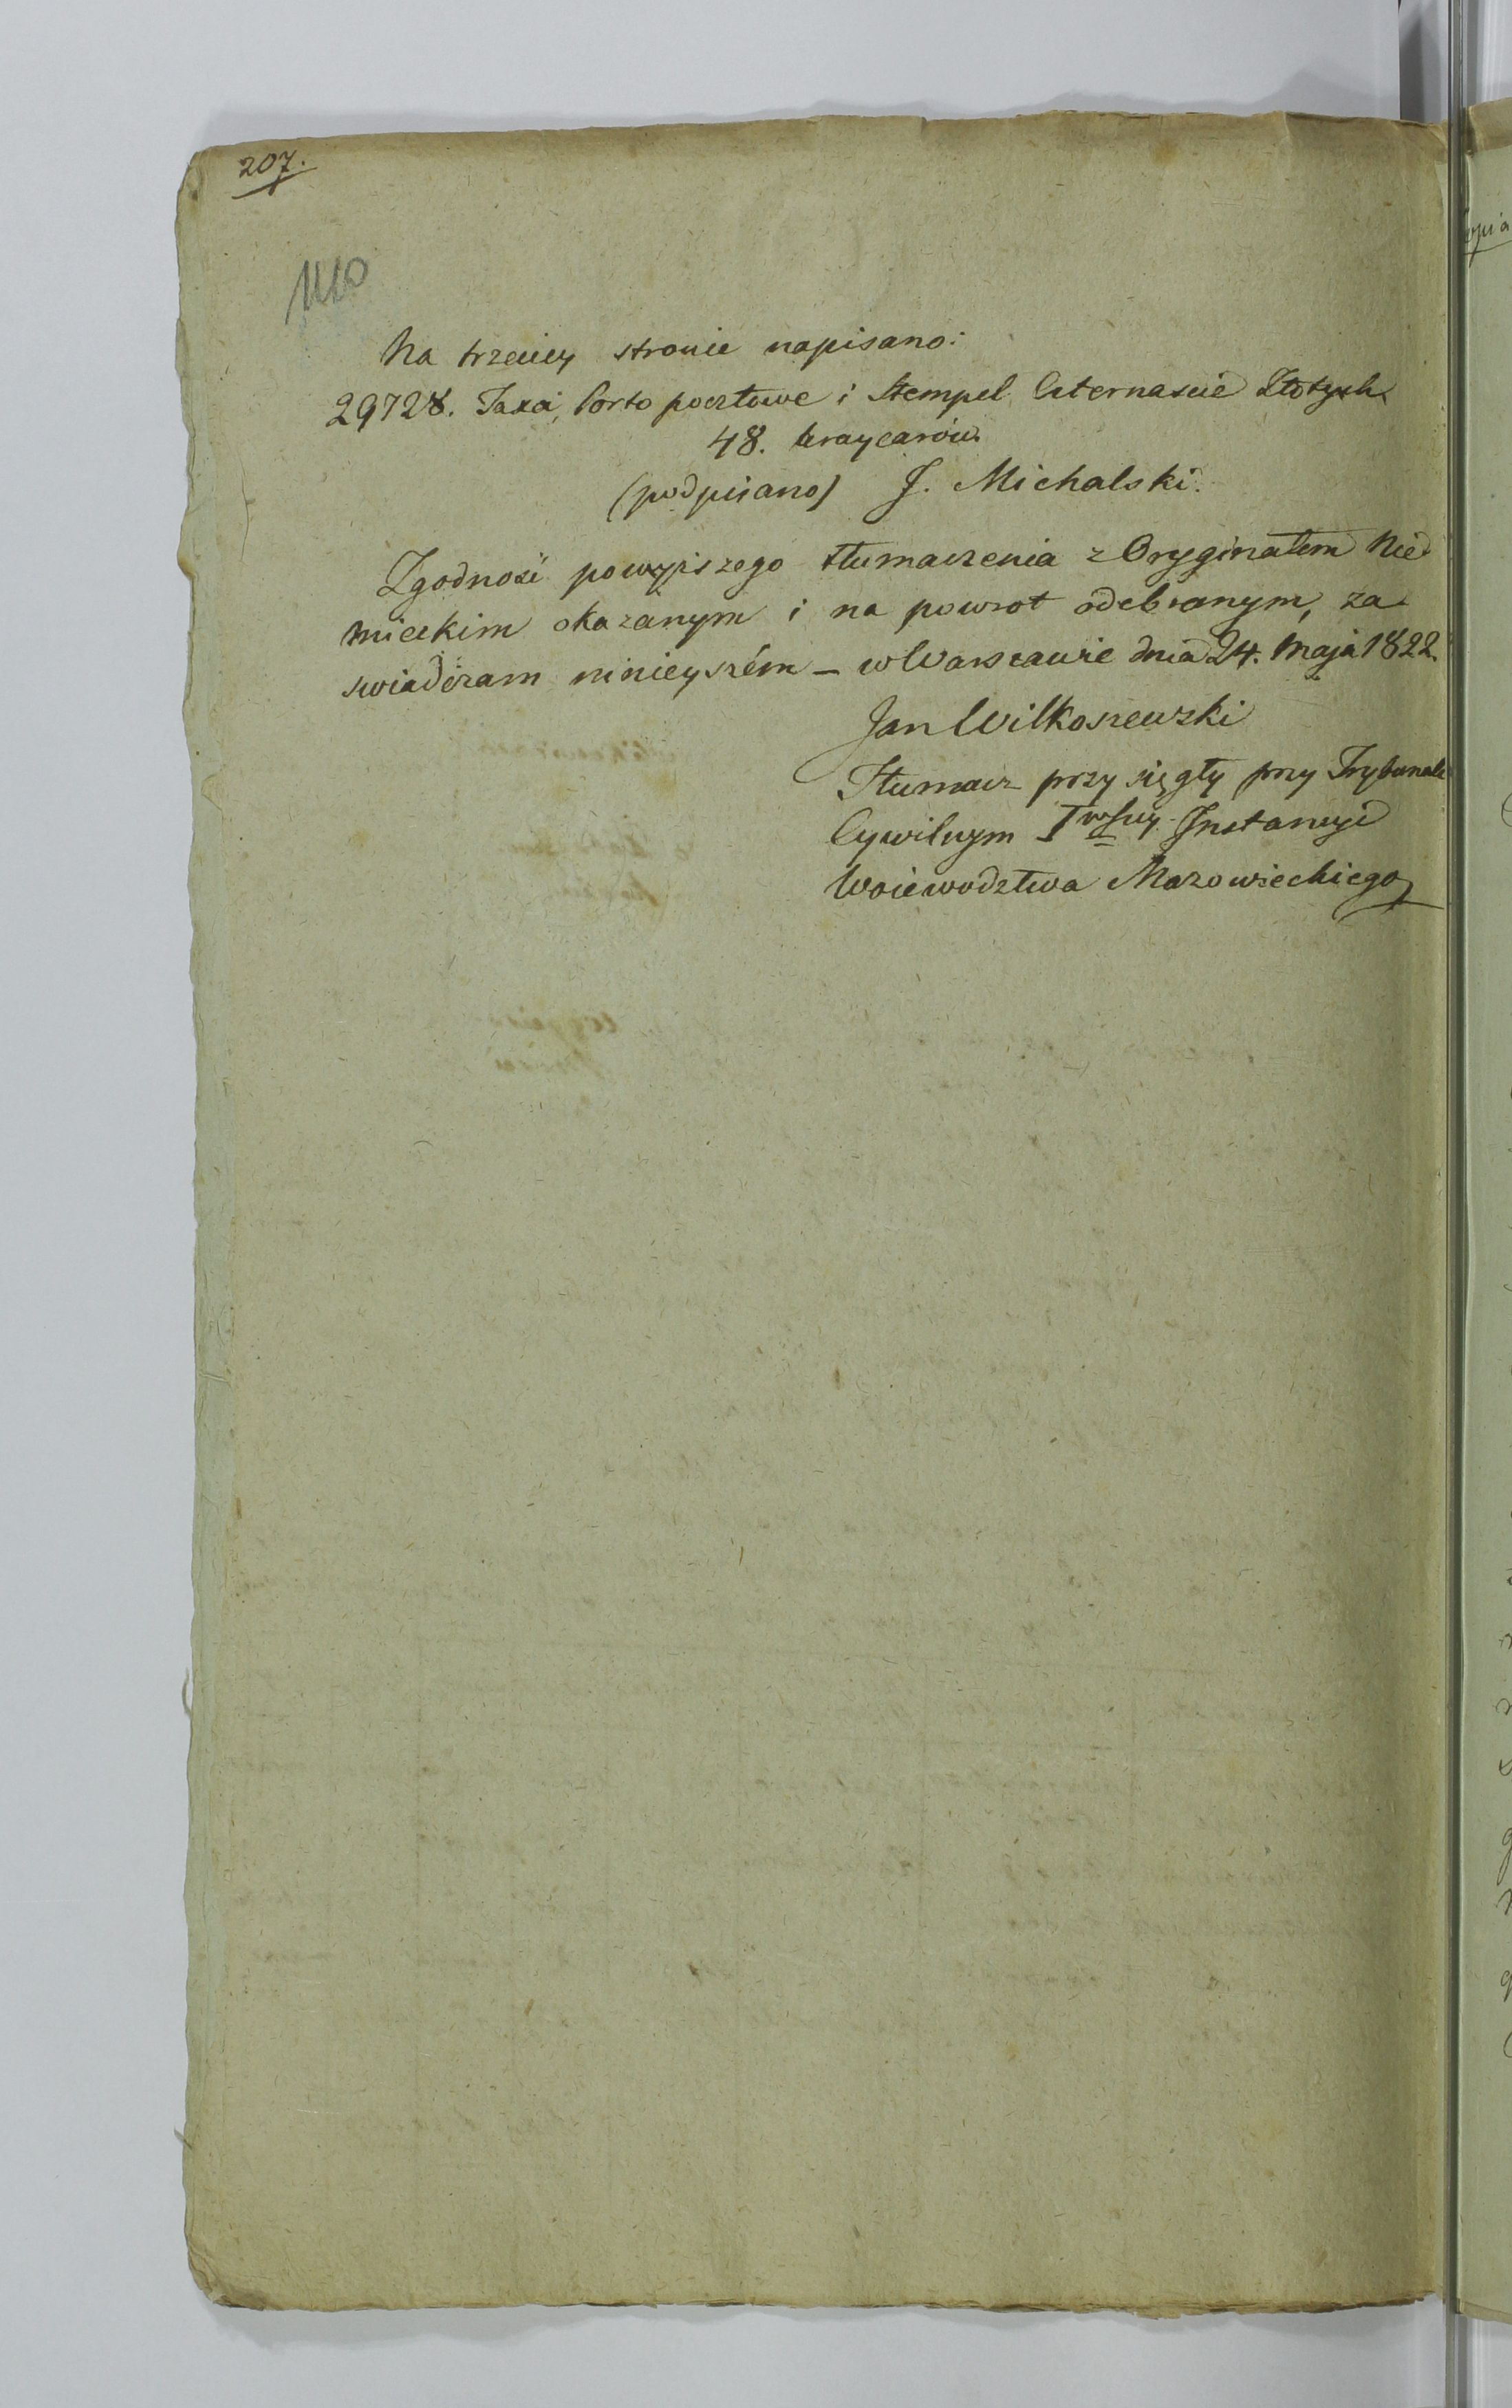 207.
Na trzeciey stronie napisano:
29728. Taxa, Porto pocztowe i Stempel Czternascie Złotych
48. kraycarów.
(podpisano) J. Michalski.
Zgodność powyższego tłumaczenia z Oryginałem Nie
mieckim okazanym i na powrot odebranym, za
swiadczam ninieyszém – w Warszawie dnia 24. Maja 1822.
Jan Wilkoszewski
Tłumacz przysięgły przy Trybunale
Cywilnym Iwszey Instancyi
Woiewodztwa Mazowieckiego